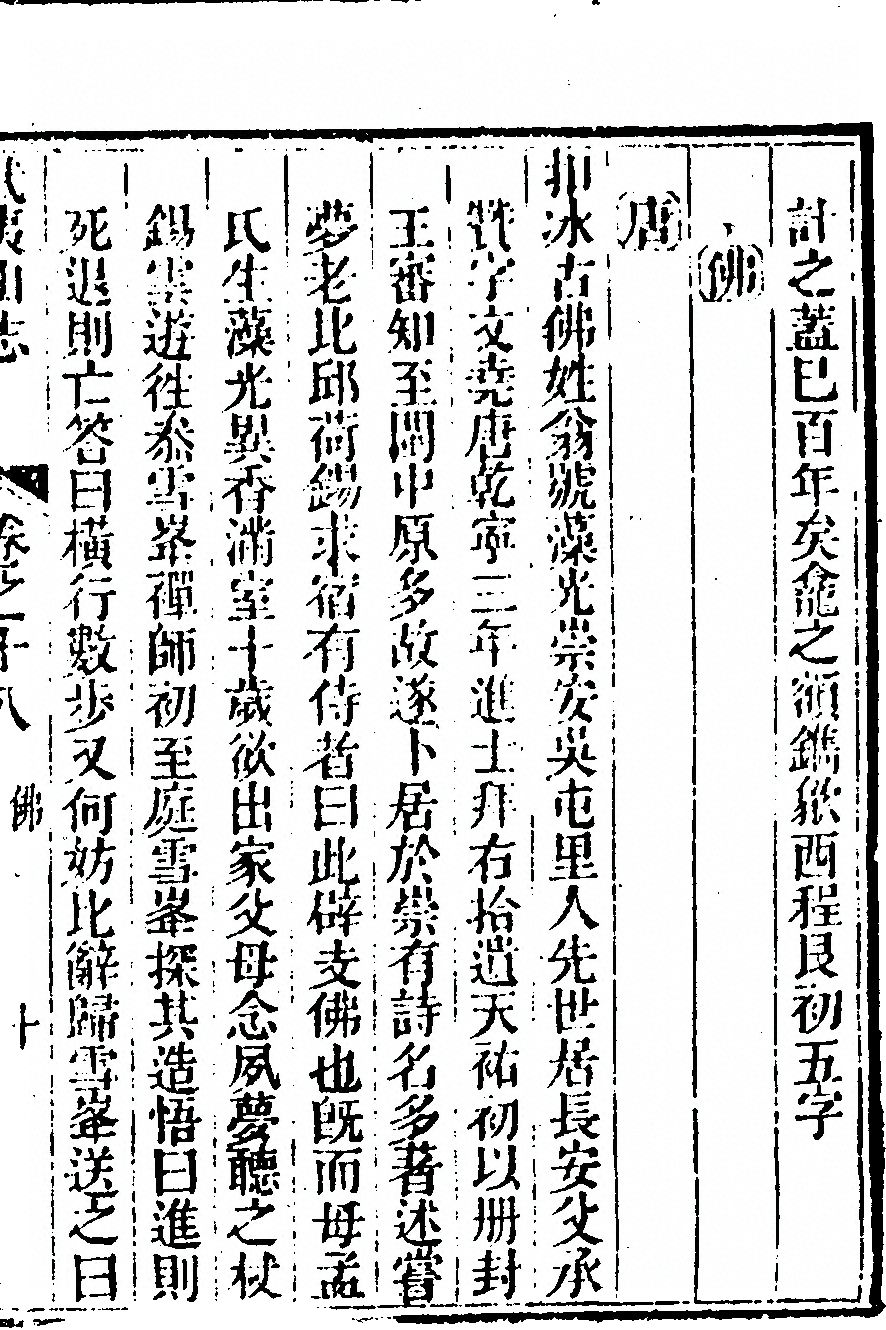 計之蓋巳百年矣龕之額鐫歙西程艮初五字
佛
唐
扣冰古佛姓翁號藻光崇安吳屯里人先世居長安父承
贊字文堯唐乾寧三年進士拜右拾遺天祐初以册封
王審知至閩中原多故遂卜居於崇有詩名多著述嘗
夢老比邱荷錫求宿有侍者曰此辟支佛也旣而母孟
氏生藻光異香滿室十歲欲出家父母念夙夢聽之杖
錫雲遊徃叅雪峯禪師初至庭雪峯探其造悟曰進則
死退則亡答曰橫行數步又何妨比辭歸雪峯送之曰
武夷山志
卷之十八
佛
十